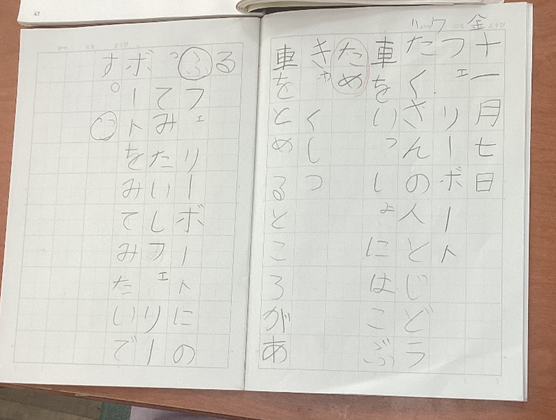 金
十一月七日
フェリーボート
たくさんの人とじどう
車をいっしょにはこぶ
ため
きゃくしつ
車をとめるところがあ
る
ふフェリーボートにの
ってみたいしフェリー
ボートをみてみたいで
す。